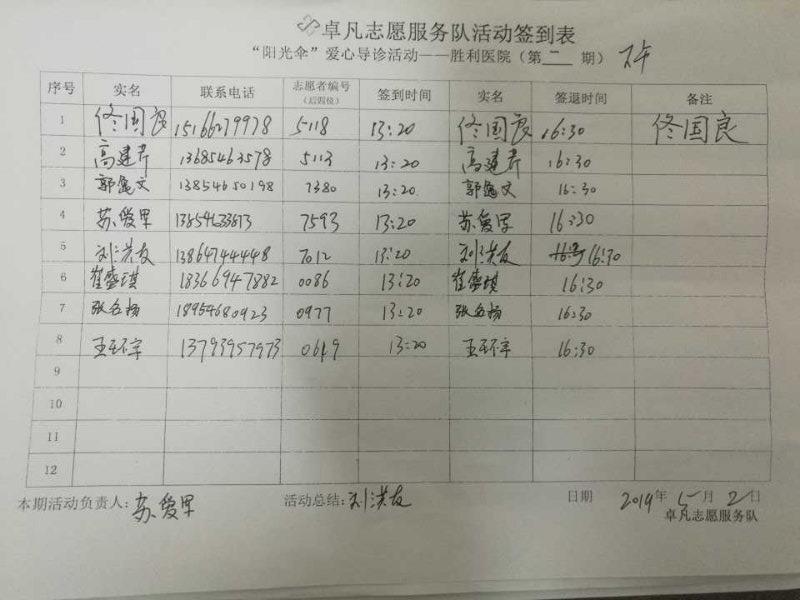 卓凡志愿服务队活动签到表
“阳光伞”爱心导诊活动——胜利医院（第二期）下午
序号 实名 联系电话 志愿者编号（后四位） 签到时间 实名 签退时间 备注
1 佟国良 15166279978 5118 13:20 佟国良 16:30 佟国良
2 高建芹 13685463578 5113 13:20 高建芹 16:30
3 郭逸文 13854650198 7380 13:20 郭逸文 16:30
4 苏爱军 7593 13:20 苏爱军 16:30
5 刘洪友 13864744448 7012 13:20 刘洪友 16:30
6 崔盛琪 18366947882 0086 13:20 崔盛琪 16:30
7 张名扬 18954680923 0977 13:20 张名扬 16:30
8 13793957973 0619 13:20 16:30
9
10
11
12
本期活动负责人：苏爱军 活动总结：刘洪友 日期 2019年5月2日
卓凡志愿服务队